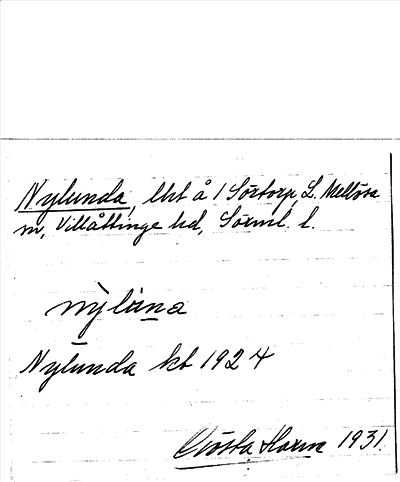 Nylunda, lht å 1 Sörtorp, L. Mellösa
sn, Villåttinge hd, Sörml. l.
nỳlùna
Nylunda kb 1924
Gösta Holm 1931.